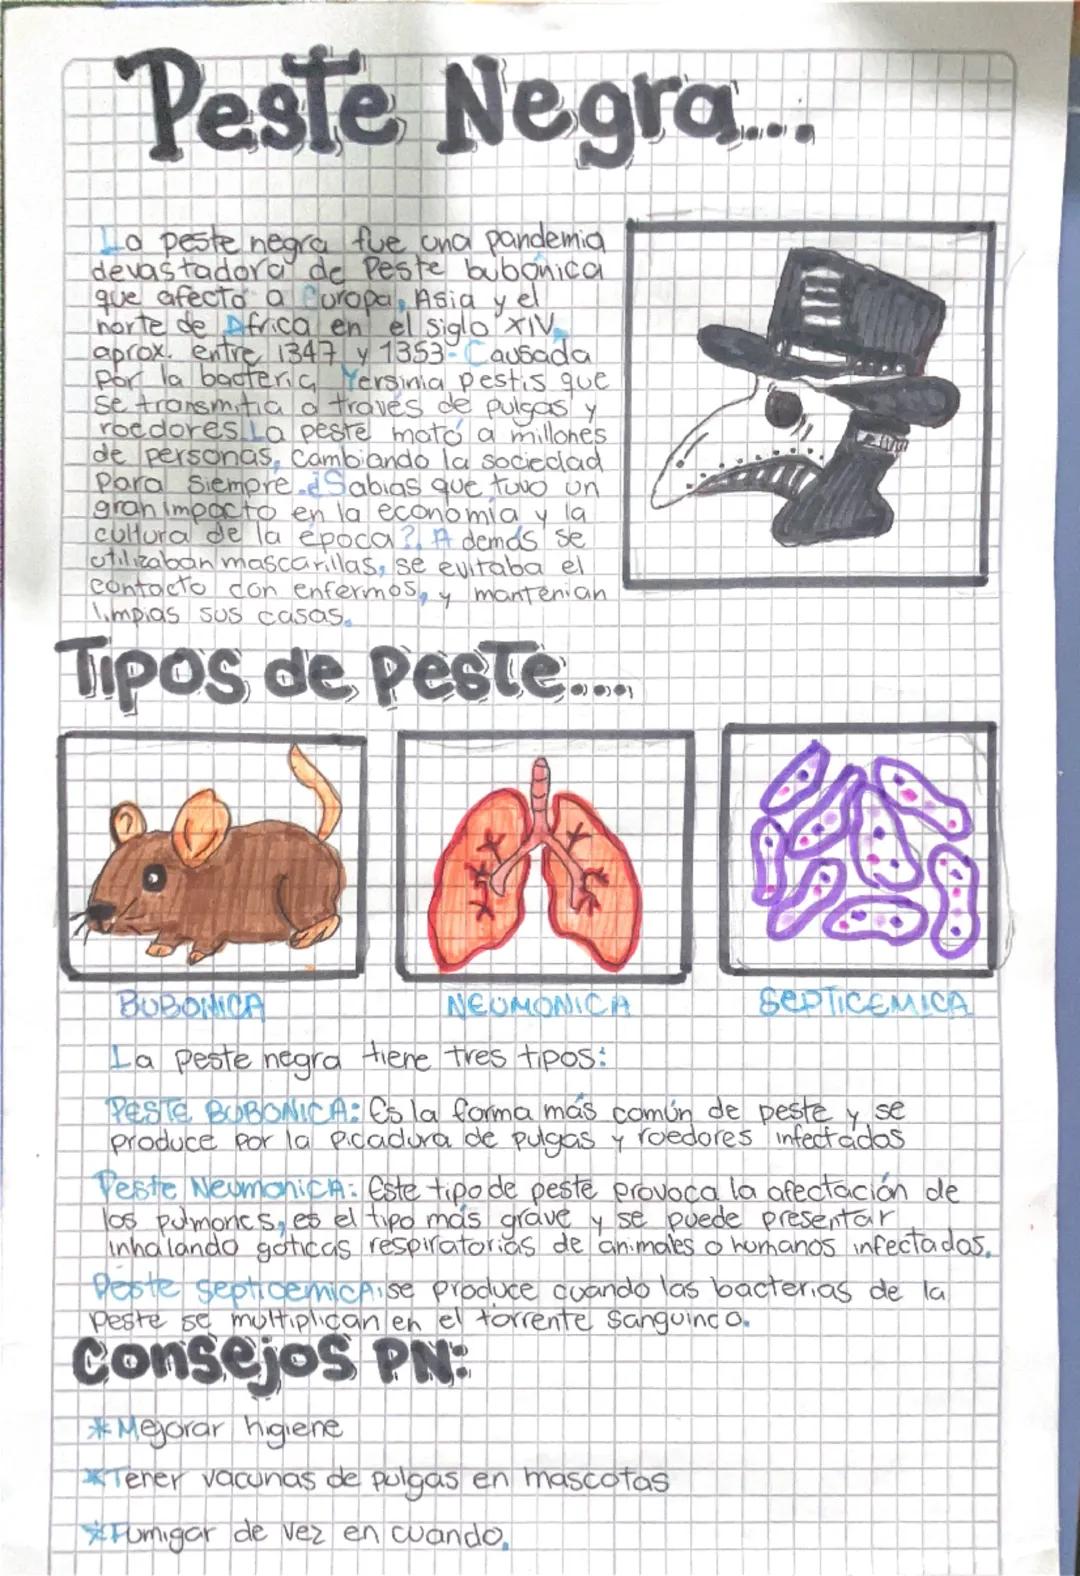 Peste Negra...
La peste negra fue una pandemia
devastadora de Peste bubónica
que afectó a Europa, Asia y el
norte de Africa en el siglo XIV,
aprox. entre 1347 y 1353- Causada
por la bacteria Yersinia pestis que
se transmitia a través de pulgas y
roedores. La peste mató a millones
de personas, cambiando la sociedad
para siempre. ¿Sabias que tuvo un
gran impacto en la economía y la
cultura de la época?, Además se
utilizaban mascarillas, se evitaba el
contacto con enfermos, y mantenian
limpias sus casas.
Tipos de peste....
BUBONICA
NEUMONICA
SEPTICEMICA
La peste negra tiene tres tipos:
PESTE BUBONICA: Es la forma más común de peste y se
produce por la picadura de pulgas y roedores infectados
Peste NeumonicA: Este tipo de peste provoca la afectación de
los pulmones, es el tipo más grave y se puede presentar
inhalando goticas respiratorias de animales o humanos infectados.
Peste septicemicA: se produce cuando las bacterias de la
peste se multiplican en el torrente sanguineo.
Consejos PN:
*Mejorar higiene
*Tener vacunas de pulgas en mascotas
*Fumigar de vez en cuando.